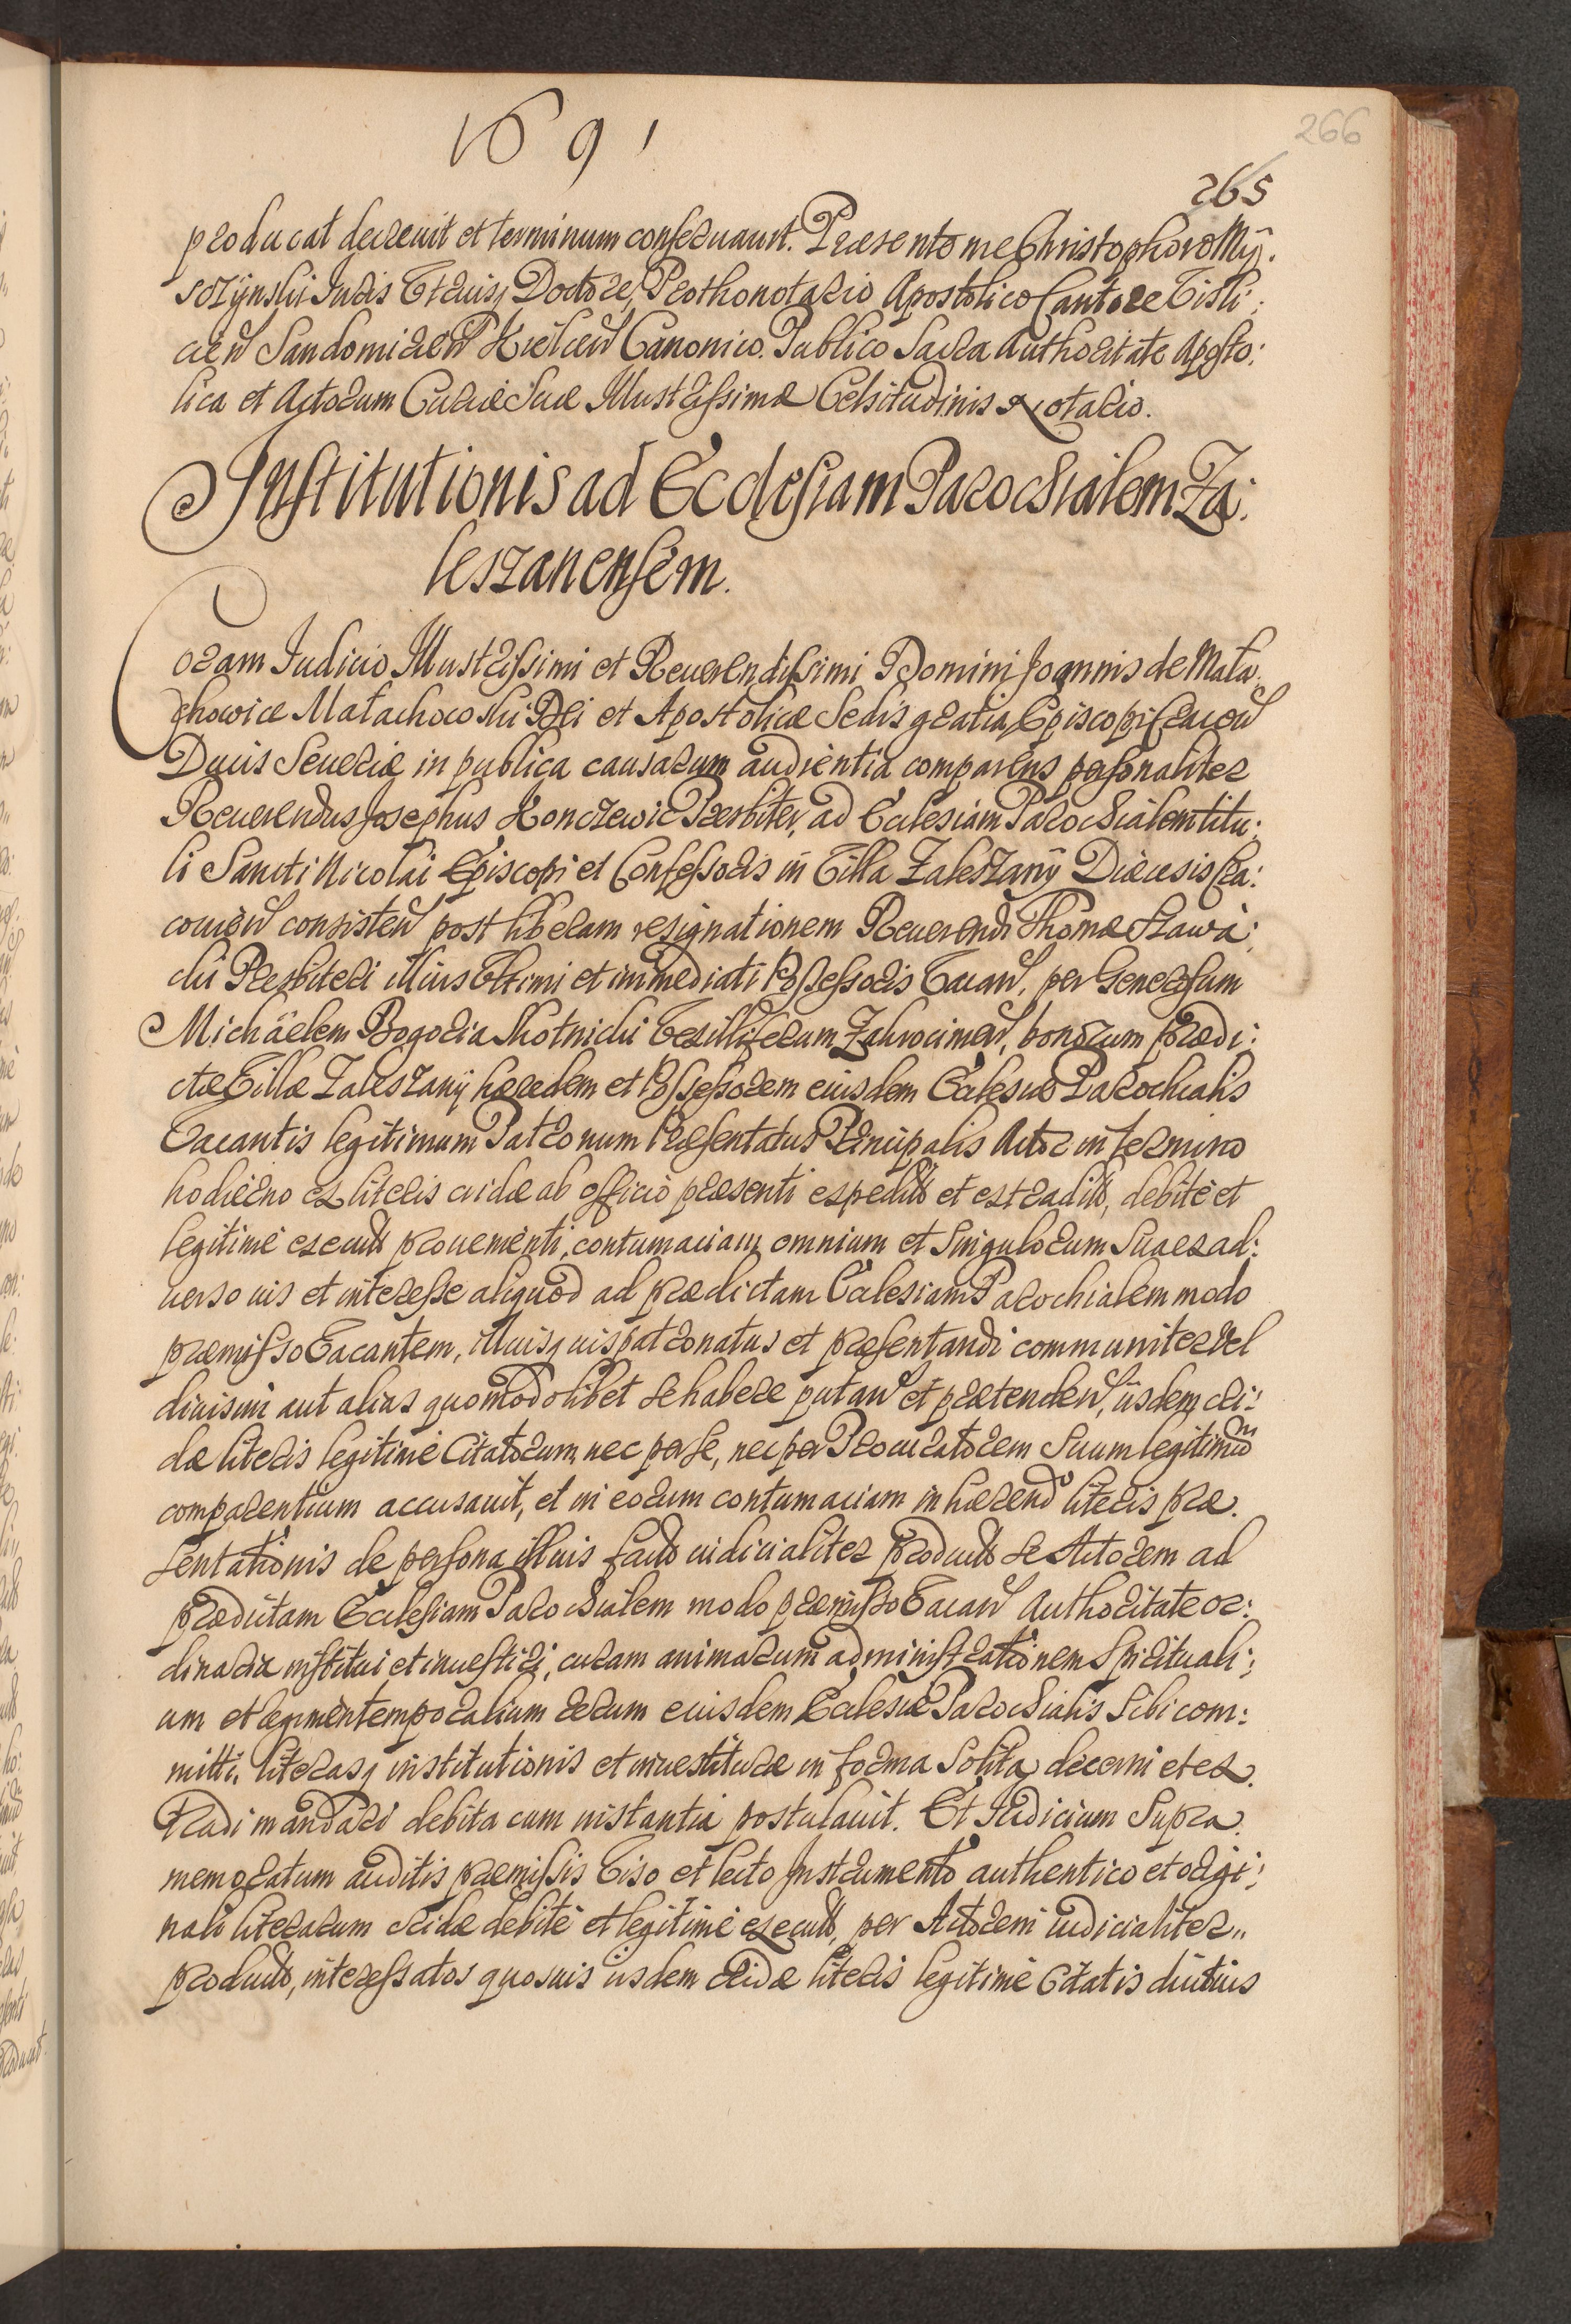 1691
266
265
producat decreuit et terminum conseruauit. Præsente me Christophoro Mij:
sozijnski Iuris Vtriusq Doctore, Prothonotario Apostolico Cantore Visli:
cien Sandomirien Kielcen Canonico. Publico Sacra Authoritate Aposto:
lica et Actorum Curiæ Suæ Illustrissimæ Celsitudinis Notario.
Institutionis ad Ecclesiam Parochialem Za:
leszanensem.
Coram Iudicio Illustrissimi et Reuerendissimi Domini Joannis de Mała:
chowice Małachowski Dei et Apostolicæ Sedis gratia Episcopi Cracoun
Ducis Seueriæ in publica causarum audientia comparens personaliter
Reuerendus Josephus Konczewic Præsbiter, ad Ecclesiam Parochialem titu:
li Sancti Nicolai Episcopi et Confessoris in Villa Zaleszanÿ Diæcesis Cra:
couien consisten post liberam resignationem Reuerendi Thomæ Sława:
cki Præsbiteri illius Vltimi et immediati Possessoris Vacan, per Generosum
Michäelem Bogoria Skotnicki Vexilliferum Zakrocimen, bonorum prædi:
ctæ Villæ Zaleszanÿ hæredem et Possessorem eiusdem Ecclesiæ Parochialis
Vacantis legitimum Patronum Præsentatus Principalis Actor in termino
hodierno ex literis cridæ ab officio præsenti expeditis et extraditis, debite et
legitime executis prouenienti, contumaciam omnium et singulorum sua ex ad:
uerso ius et interesse aliquod ad prædictam Ecclesiam Parochialem modo
præmisso Vacantem, illiusq ius patronatus et præsentandi communiter vel
diuisim aut alias quomodolibet se habere putan et prætenden, iisdem cri:
dæ literis legitime Citatorum, nec per se, nec per Procuratorem suum legitimum
comparentium accusauit, et in eorum contumaciam inhærendo literis præ:
sentationis de persona illius factis iudicialiter productis se Actorem ad
prædictam Ecclesiam Parochialem modo præmisso Vacan Authoritate or:
dinaria institui et inuestiri, curam animarum administrationem spirituali:
um et regimen temporalium rerum eiusdem Ecclesiæ Parochialis sibi com:
mitti, literasq institutionis et inuestituræ in forma solita decerni et ex:
tradi mandari debita cum instantia postulauit. Et Iudicium supra:
memoratum auditis præmissis Viso et lecto Instrumento authentico et origi:
nali literarum cridæ debite et legitime executis, per Actorem iudicialiter
productis, interessatos quosuis iisdem cridæ literis legitime citatis diutius